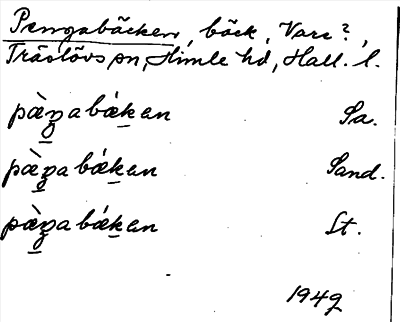 Pengabäcken, bäck, Vare?,
Träslövs sn, Himle hd, Hall. l.
pæ̀ŋabǽkan Sa.
pæ̀ŋabǽkan Sand.
pæ̀ŋabǽkan St.
1949